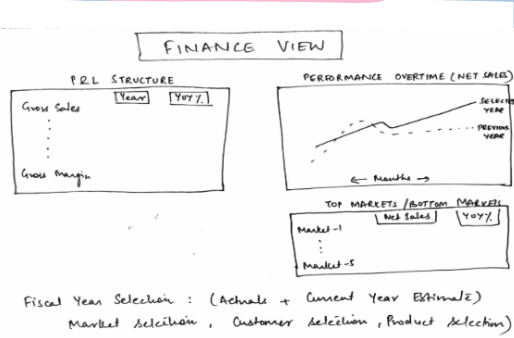 FINANCE VIEW
P&L STRUCTURE
Year YOY %
Gross Sales
Gross Margin
PERFORMANCE OVERTIME (NET SALES)
SELECTED YEAR
PREVIOUS YEAR
← Months →
TOP MARKETS / BOTTOM MARKETS
Net Sales YOY %
Market-1
Market-5
Fiscal Year Selection : (Actuals + Current Year Estimate)
Market selection , Customer selection , Product selection)